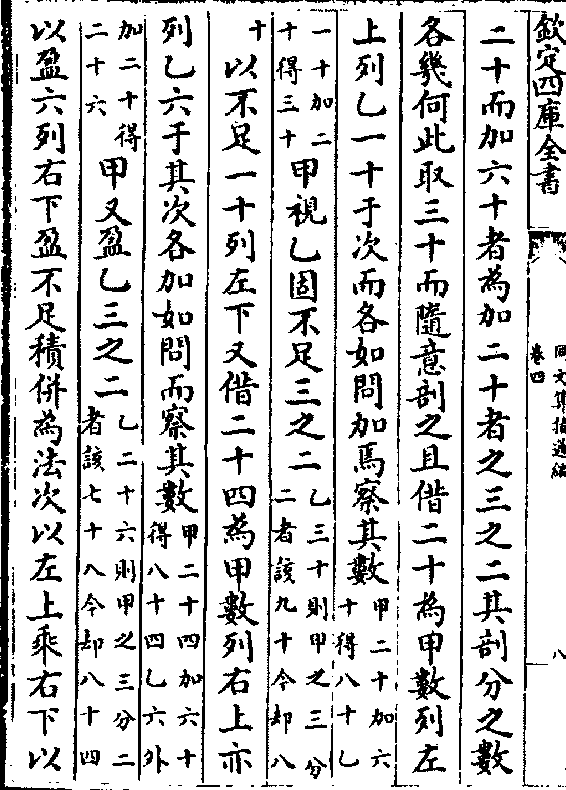 欽定四庫全書
同文算指通編
卷四
八
二十而加六十者為加二十者之三之二其剖分之數
各幾何此取三十而隨意剖之且借二十為甲數列左
上列乙一十于次而各如問加焉察其數甲二十加六十得八十乙
一十加二十得三十甲視乙固不足三之二乙三十則甲之三分二者該九十今却八
十以不足一十列左下又借二十四為甲數列右上亦
列乙六于其次各加如問而察其數甲二十四加六十得八十四乙六外
加二十得二十六甲又盈乙三之二乙二十六則甲之三分二者該七十八今却八十四
以盈六列右下盈不足積併為法次以左上乘右下以